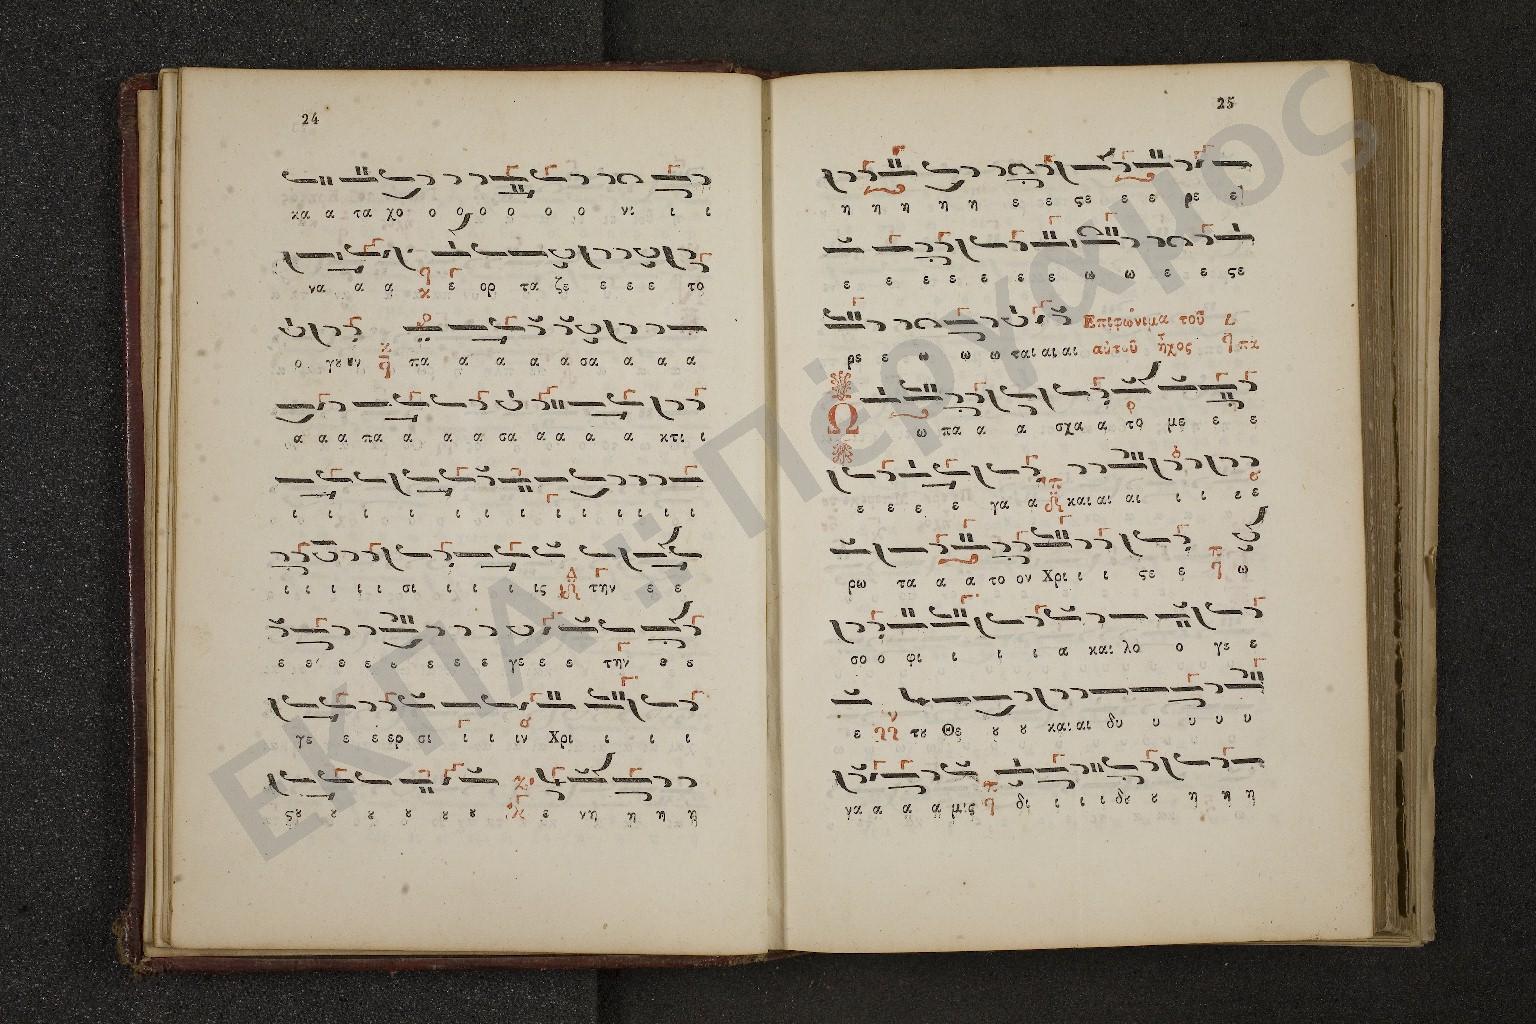 24
κα α τα χο ο ο ο ο ο ο νι ι ι
να α α ε ορ τα ζε ε ε ε το
ο γουν πα α α α α σα α α α
α α α πα α α α σα α α α α κτι ι
ι ι ι ι ι ι ι ι ι ι ι ι
ι ι ι ι ι σι ι ι ι ις την ε ε
ε ε ε ε ε ε ε ε γε ε ε την ε ε
γε ε ε ερ σι ι ι ιν Χρι ι ι ι
ςȣ ȣ ȣ ȣ ȣ ȣ ȣ ε νη η η η
25
η η η η η ε ε ςε ε ε ρε ε
ε ε ε ε ε ε ε ω ω ε ε ςε
ρε ε ω ω ω ται αι αι Επιφώνιμα τοῦ
αὐτοῦ ἦχος πα
Ω ω πα α α σχα α το με ε ε
ε ε ε ε γα α και αι αι ι ι ι ε
ρω τα α α το ον Χρι ι ι ςε ε ω
σο ο φι ι ι ι α και λο ο γε ε
ε τȣ Θε ȣ ȣ και αι δυ υ υ υ υ
να α α α μις δι ι ι ι δȣ ȣ η η η
ΕΚΠΑ :: Πέργαμος